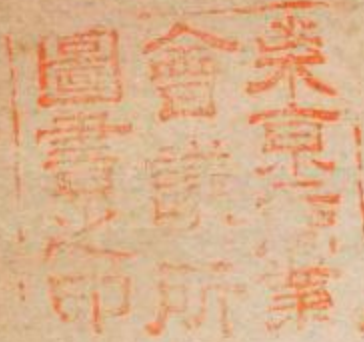 東京商業
會議所
圖書之印